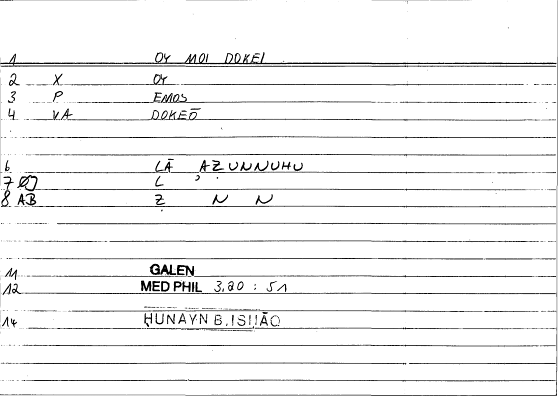 1 OY MOI DOKEI
2 X OY
3 P EMOS
4 VA DOKEŌ
6 LĀ AẒUNNUHU
7 L ʾ
8 AB Ẓ N N
11 GALEN
12 MED PHIL 3,20 : 51
14 ḤUNAYN B. ISḤĀQ